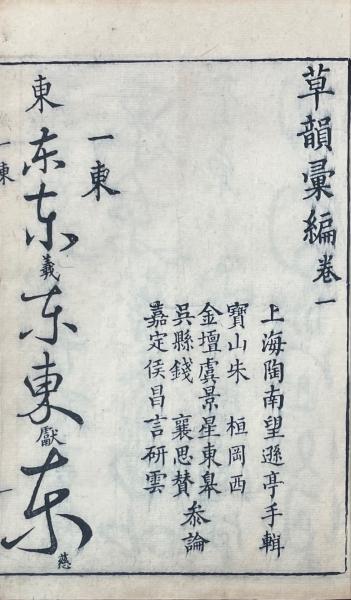 草韻彙編卷一
上海陶南望遜亭手輯
寶山朱　桓岡西
金壇虞景星東皋
吳縣錢　襄思贊
嘉定侯昌言研雲
叅論
一東
東东东羲东東獻东慈
一東